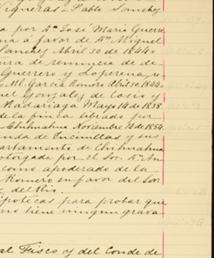 Figueras, Pablo Sanchez
a por Dn. José María Guerra
na á favor de Dn. Miguel
Sanchez Abril 30 de 1844.
ura de renuncia de de
Guerrero y Loperena, 
Ml. García Conde Abril 30, 1844.
uel Gonzalez de Cosio
Madariaga Mayo 14 de 1838.
de la finca librado por
Chihuahua Noviembre 4 de 1854.
nda de Encinillas y sus
artamento de Chihuahua
otorgada por el Sor. Dn.
como apoderado de la
Romero en favor del Sor.
del Rio.
ipotecas para probar que
no tiene ningun grava
al Fisco y del Conde de